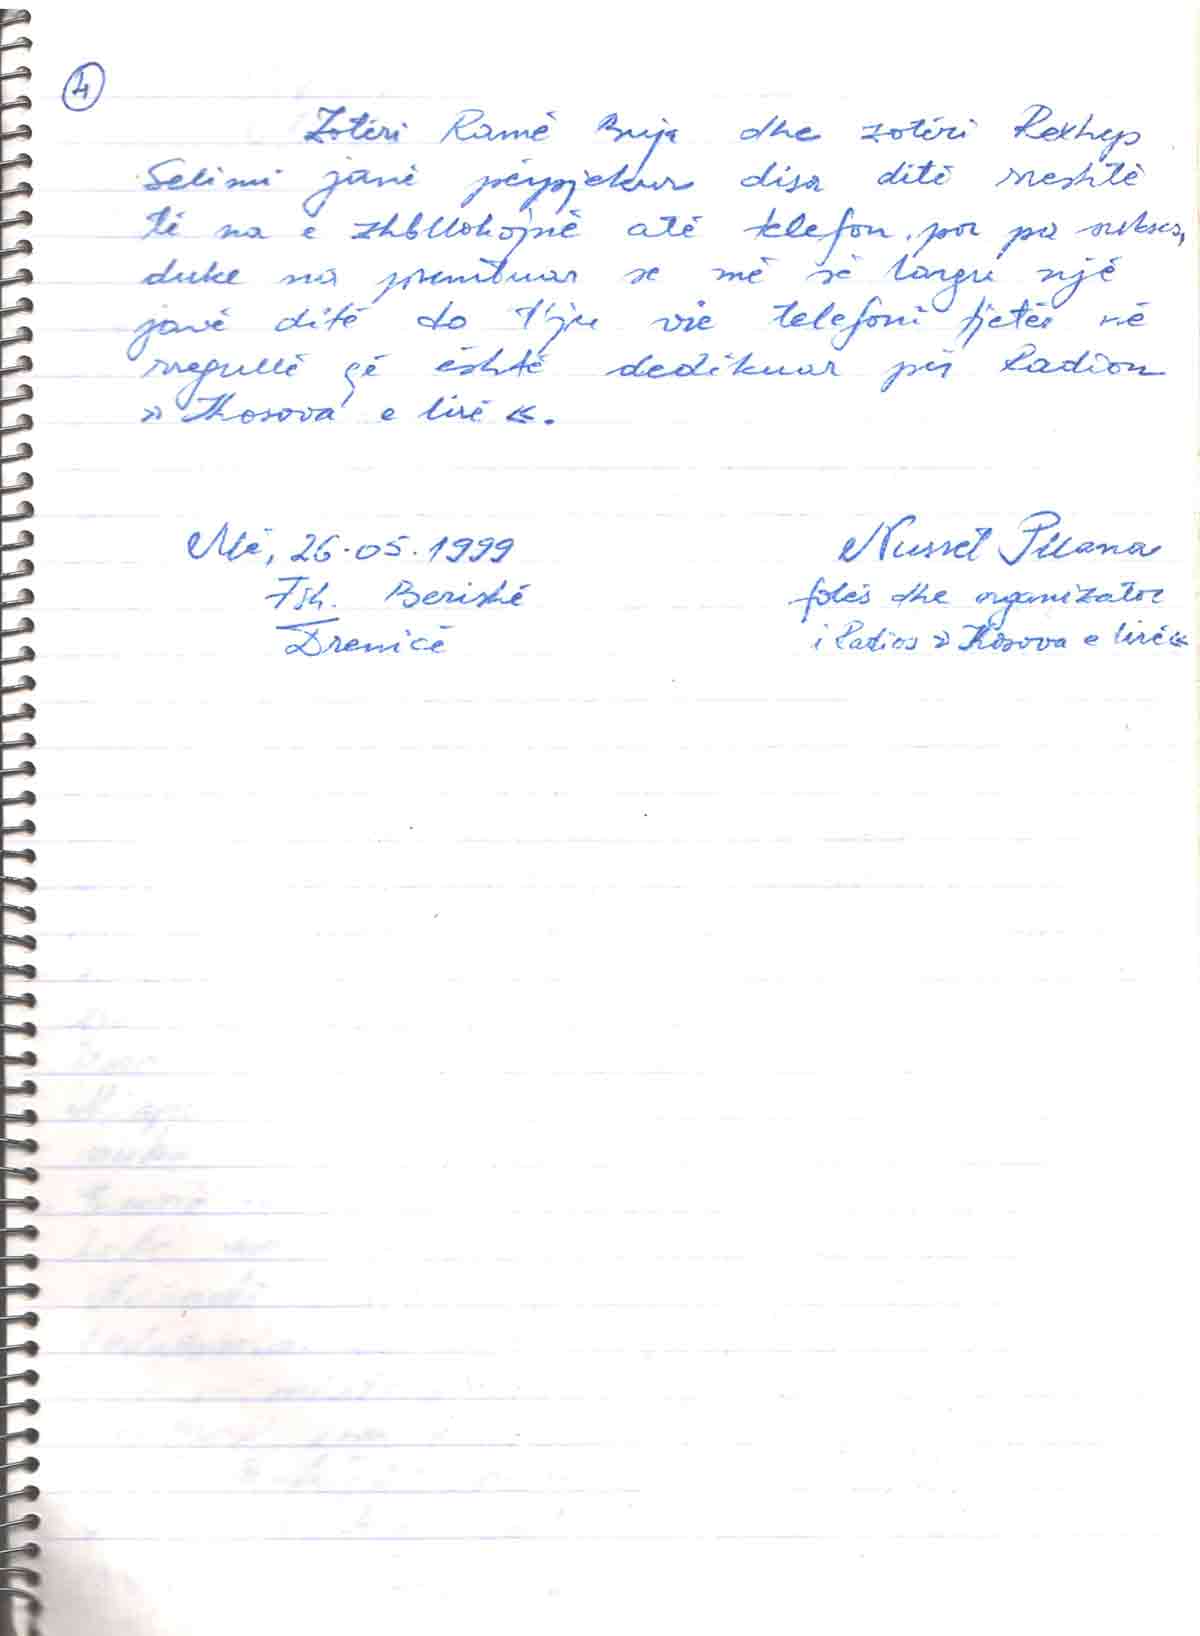 4
Zotëri Ramë Buja dhe zotëri Rexhep
Selimi janë përpjekur disa ditë rreshtë
të na e zhbllokojnë atë telefon, por pa sukses,
duke na premtuar se më së largu një
javë ditë do t'ju vie telefoni tjetër në
rregullë që është dedikuar për Radion
» Kosova e lirë «.
Më, 26.05.1999
Fsh. Berishë
Drenicë
Nusret Pllana
folës dhe organizator
i Radios » Kosova e lirë «